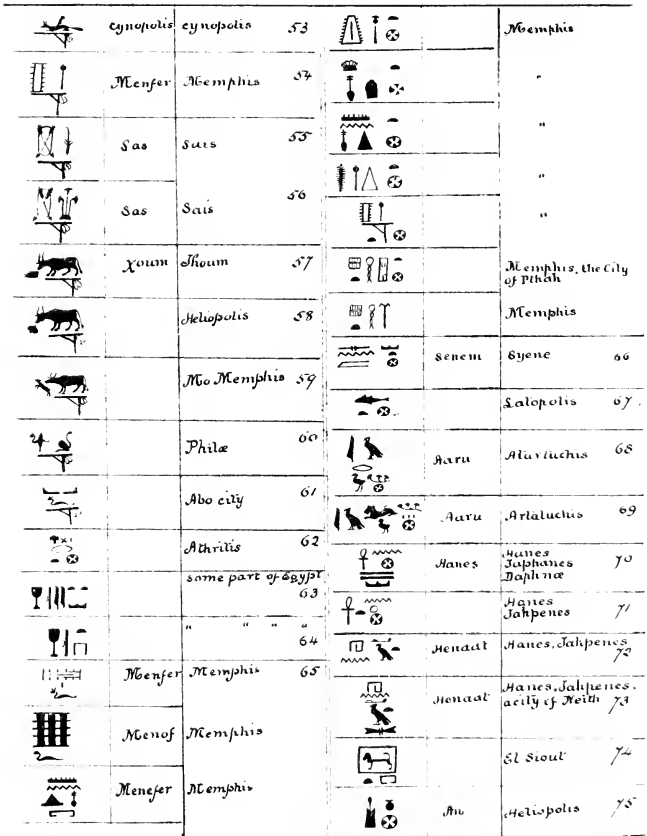 Cynopolis Cynopolis 53
Menfer Memphis 54
Sas Sais 55
Sas Sais 56
Xoum Thoum 57
Heliopolis 58
Mo Memphis 59
Philæ 60
Abo city 61
Athritis 62
some part of Egypt
63
" " " "
64
Menfer Memphis 65
Menof Memphis
Menefer Memphis
Memphis
"
"
"
"
Memphis, the City
of Pthah
Memphis
Senem Syene 66
Latopolis 67.
Aaru 68
Aaru 69
Hanes
Hanes Taphanes 70
Daphnæ
Hanes
Tahpenes 71
Henaat Hanes, Tahpenes
72
Henaat Hanes, Tahpenes,
a city of Neith 73
El Siout 74
An Heliopolis 75